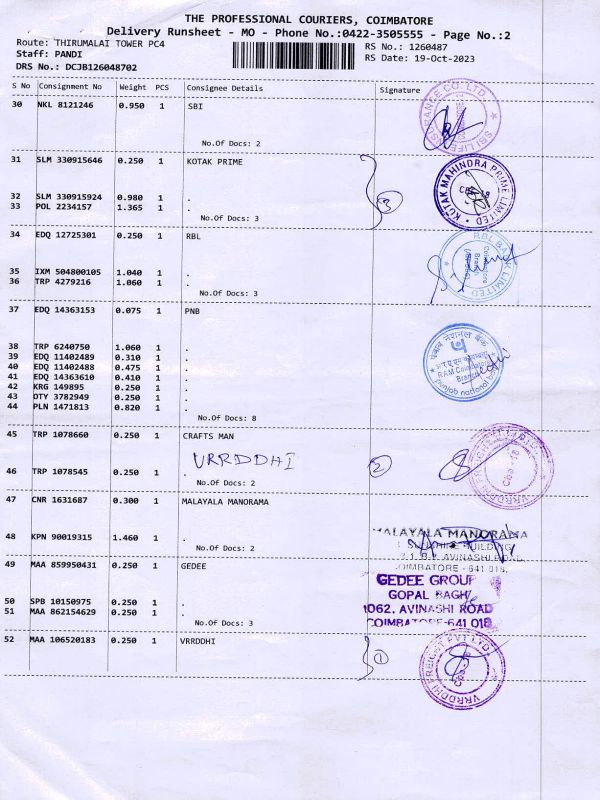 THE PROFESSIONAL COURIERS, COIMBATORE
Delivery Runsheet - MO - Phone No.:0422-3505555 - Page No.:2
Route: THIRUMALAI TOWER PC4 RS No.: 1260487
Staff: PANDI RS Date: 19-Oct-2023
DRS No.: DCJB126048702
S No Consignment No Weight PCS Consignee Details Signature
30 NKL 8121246 0.950 1 SBI
No.Of Docs: 2
SBI LIFE INSURANCE CO. LTD.
31 SLM 330915646 0.250 1 KOTAK PRIME
32 SLM 330915924 0.980 1 .
33 POL 2234157 1.365 1 .
No.Of Docs: 3
3
KOTAK MAHINDRA PRIME LIMITED
34 EDQ 12725301 0.250 1 RBL
35 IXM 504800105 1.040 1 .
36 TRP 4279216 1.060 1 .
No.Of Docs: 3
RBL BANK LIMITED
Coimbatore
Branch
37 EDQ 14363153 0.075 1 PNB
38 TRP 6240750 1.060 1 .
39 EDQ 11402489 0.310 1 .
40 EDQ 11402488 0.475 1 .
41 EDQ 14363610 0.410 1 .
42 KRG 149895 0.250 1 .
43 OTY 3782949 0.250 1 .
44 PLN 1471813 0.820 1 .
No.Of Docs: 8
पंजाब नैशनल बैंक
RAM Coimbatore
Branch
punjab national bank
45 TRP 1078660 0.250 1 CRAFTS MAN
VRRDDHI
46 TRP 1078545 0.250 1 .
No.Of Docs: 2
2
VRRDDHI FREIGHT PVT LTD
CBE-18
47 CNR 1631687 0.300 1 MALAYALA MANORAMA
48 KPN 90019315 1.460 1 .
No.Of Docs: 2
MALAYALA MANORAMA
BUILDING
AVINASHI ROAD
COIMBATORE - 641 018.
49 MAA 859950431 0.250 1 GEDEE
50 SPB 10150975 0.250 1 .
51 MAA 862154629 0.250 1 .
No.Of Docs: 3
GEDEE GROUP
GOPAL BAGH
1062, AVINASHI ROAD
COIMBATORE-641 018
52 MAA 106520183 0.250 1 VRRDDHI
1
VRRDDHI FREIGHT PVT LTD